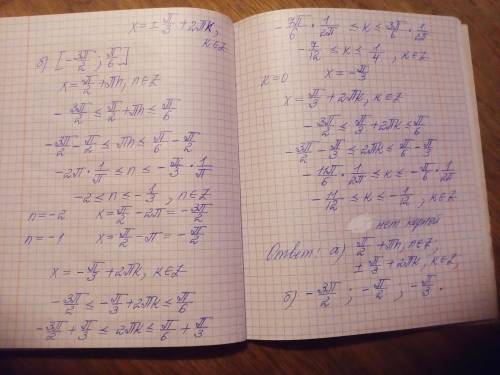 x = ± π/3 + 2πk,
k∈Z
б) [-3π/2; π/6]
x = π/2 + πn, n∈Z
-3π/2 ≤ π/2 + πn ≤ π/6
-3π/2 - π/2 ≤ πn ≤ π/6 - π/2
-2π · 1/π ≤ n ≤ -π/3 · 1/π
-2 ≤ n ≤ -1/3, n∈Z
n=-2 x = π/2 - 2π = -3π/2
n=-1 x = π/2 - π = -π/2
x = -π/3 + 2πk, k∈Z
-3π/2 ≤ -π/3 + 2πk ≤ π/6
-3π/2 + π/3 ≤ 2πk ≤ π/6 + π/3
-7π/6 · 1/2π ≤ k ≤ 3π/6 · 1/2π
-7/12 ≤ k ≤ 1/4, k∈Z
k=0 x = -π/3
x = π/3 + 2πk, k∈Z
-3π/2 ≤ π/3 + 2πk ≤ π/6
-3π/2 - π/3 ≤ 2πk ≤ π/6 - π/3
-11π/6 · 1/2π ≤ k ≤ -π/6 · 1/2π
-11/12 ≤ k ≤ -1/12, k∈Z
нет корней
Ответ: а) π/2 + πn, n∈Z,
± π/3 + 2πk, k∈Z;
б) -3π/2; -π/2; -π/3.